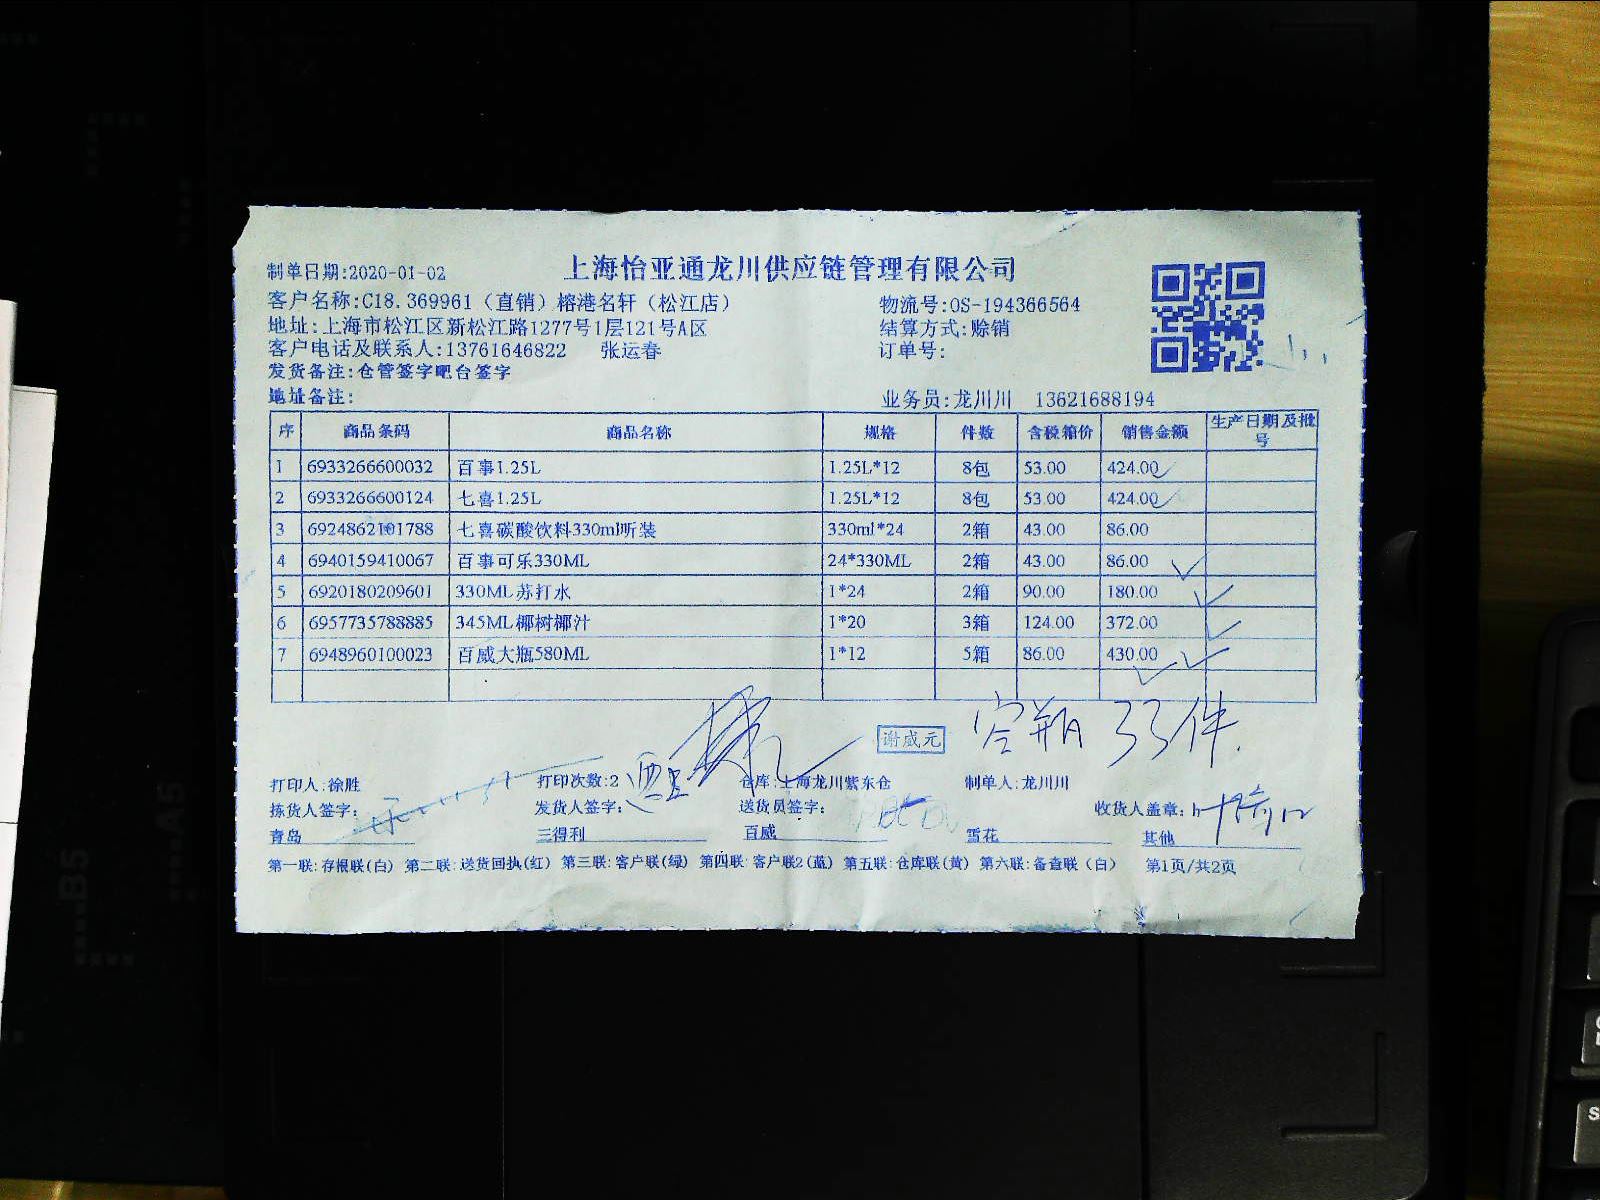 上海怡亚通龙川供应链管理有限公司
制单日期:2020-01-02
客户名称:C18.369961（直销）榕港名轩（松江店） 物流号:OS-194366564
地址:上海市松江区新松江路1277号1层121号A区 结算方式:赊销
客户电话及联系人:13761646822 张运春 订单号:
发货备注:仓管签字吧台签字
地址备注: 业务员:龙川川 13621688194
序 商品条码 商品名称 规格 件数 含税箱价 销售金额 生产日期及批号
1 6933266600032 百事1.25L 1.25L*12 8包 53.00 424.00
2 6933266600124 七喜1.25L 1.25L*12 8包 53.00 424.00
3 6924862101788 七喜碳酸饮料330ml听装 330ml*24 2箱 43.00 86.00
4 6940159410067 百事可乐330ML 24*330ML 2箱 43.00 86.00
5 6920180209601 330ML苏打水 1*24 2箱 90.00 180.00
6 6957735788885 345ML椰树椰汁 1*20 3箱 124.00 372.00
7 6948960100023 百威大瓶580ML 1*12 5箱 86.00 430.00
谢威元 33件
打印人:徐胜 打印次数:2 仓库:上海龙川紫东仓 制单人:龙川川
拣货人签字: 发货人签字: 送货员签字: 收货人盖章:
青岛 三得利 百威 雪花 其他
第一联:存根联(白) 第二联:送货回执(红) 第三联:客户联(绿) 第四联:客户联2(蓝) 第五联:仓库联(黄) 第六联:备查联（白） 第1页/共2页
B5
A5